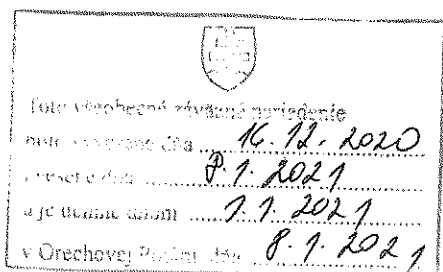 Toto všeobecné záväzné nariadenie
bolo vyvesené dňa ..... 16.12.2020
dňa ..... 8.1.2021
a je účinné dňom ..... 1.1.2021
v Orechovej Potôni dňa 8.1.2021